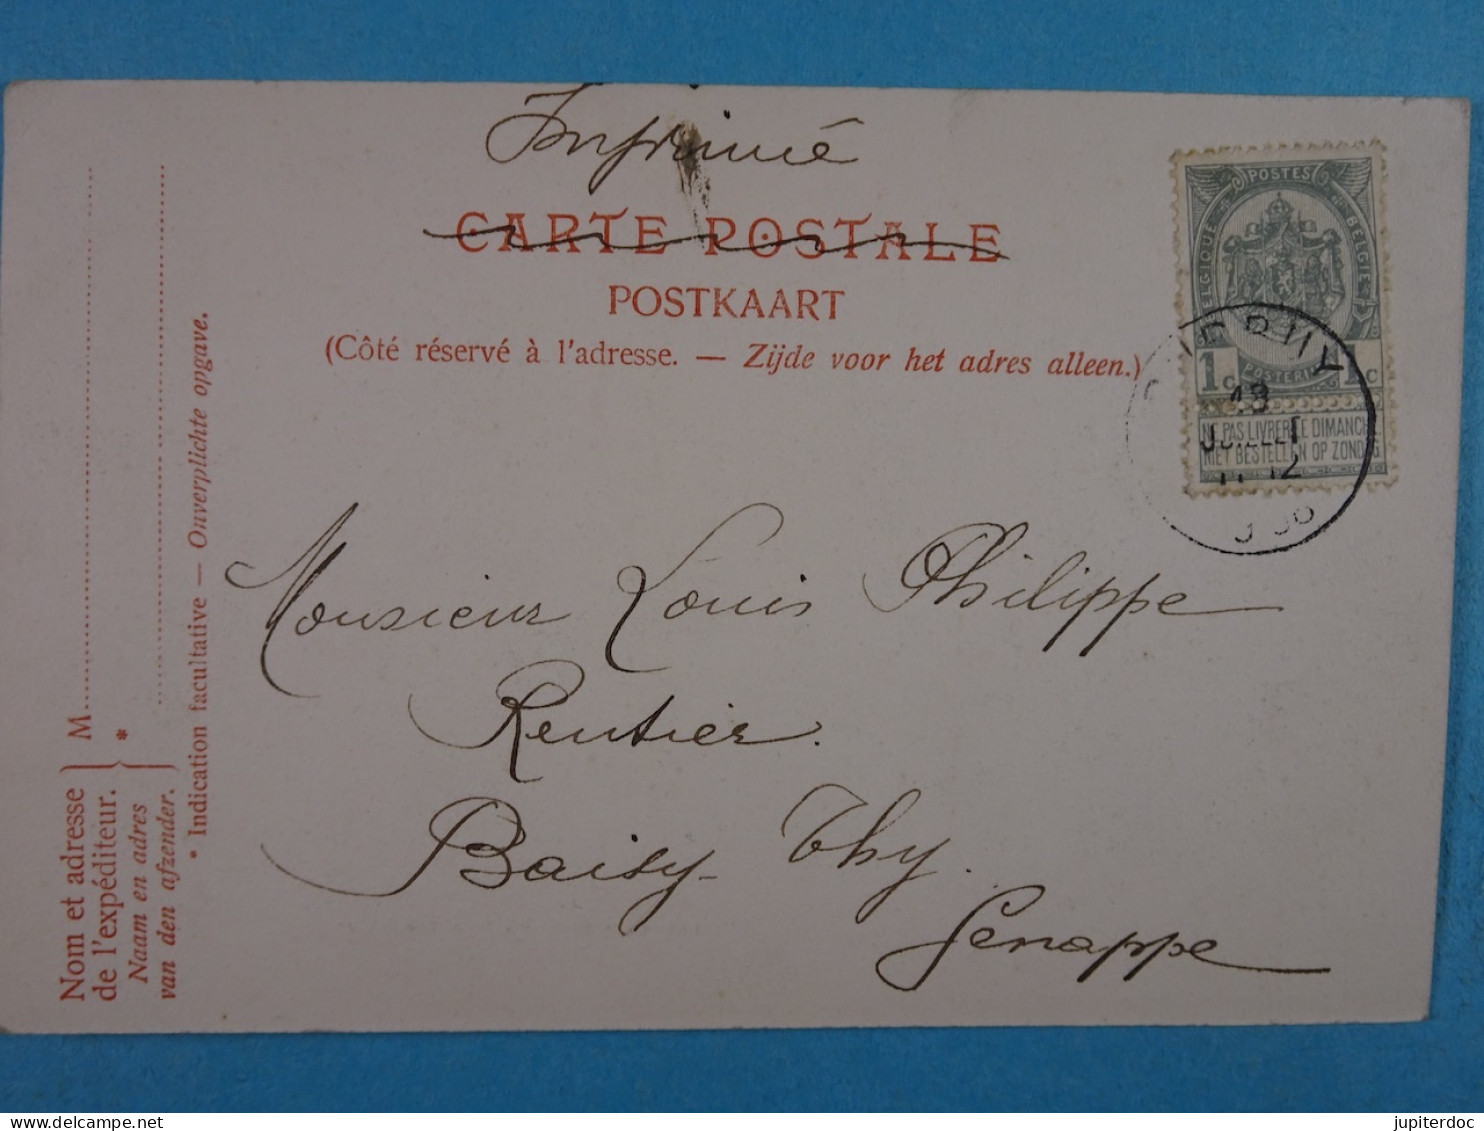 Imprimé
CARTE POSTALE
POSTKAART
(Côté réservé à l'adresse. — Zijde voor het adres alleen.)
POSTES
BELGIQUE
BELGIË
1c 1c
NE PAS LIVRER LE DIMANCHE
NIET BESTELLEN OP ZONDAG
18
JUILLET
Monsieur Louis Philippe
Rentier.
Baisy-Thy.
Genappe
Nom et adresse
de l'expéditeur.
Naam en adres
van den afzender.
M
*
* Indication facultative — Onverplichte opgave.
jupiterdoc